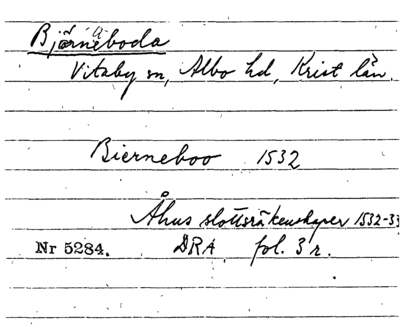 Björneboda
Vitaby sn, Albo hd, Krist län.
Bierneboo 1532
Åhus slottsräkenskaper 1532-33
Nr 5284. DRA fol. 3 r.